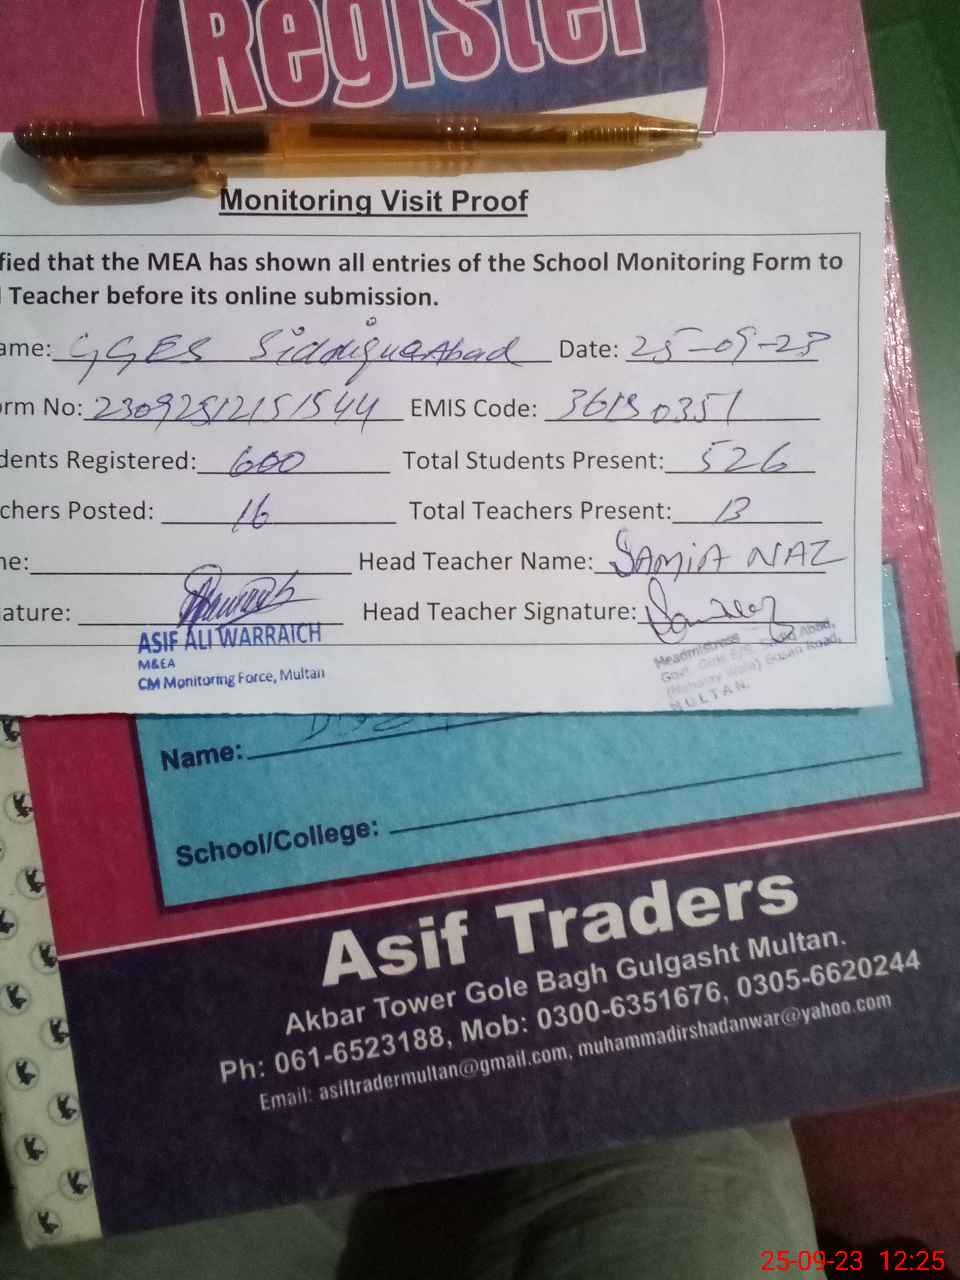 Register
Monitoring Visit Proof
fied that the MEA has shown all entries of the School Monitoring Form to
Teacher before its online submission.
ame: GGES SiddiquaAbad Date: 25-09-23
orm No: 23092512151544 EMIS Code: 36130351
dents Registered: 600 Total Students Present: 526
chers Posted: 16 Total Teachers Present: 13
ne: Head Teacher Name: SAMIA NAZ
ature: Head Teacher Signature:
ASIF ALI WARRAICH
M&EA
CM Monitoring Force, Multan
Headmistress
Govt. Girls E/S Abad,
Susan Road,
MULTAN.
Name:
School/College:
Asif Traders
Akbar Tower Gole Bagh Gulgasht Multan.
Ph: 061-6523188, Mob: 0300-6351676, 0305-6620244
Email: asiftradermultan@gmail.com, muhammadirshadanwar@yahoo.com
25-09-23 12:25